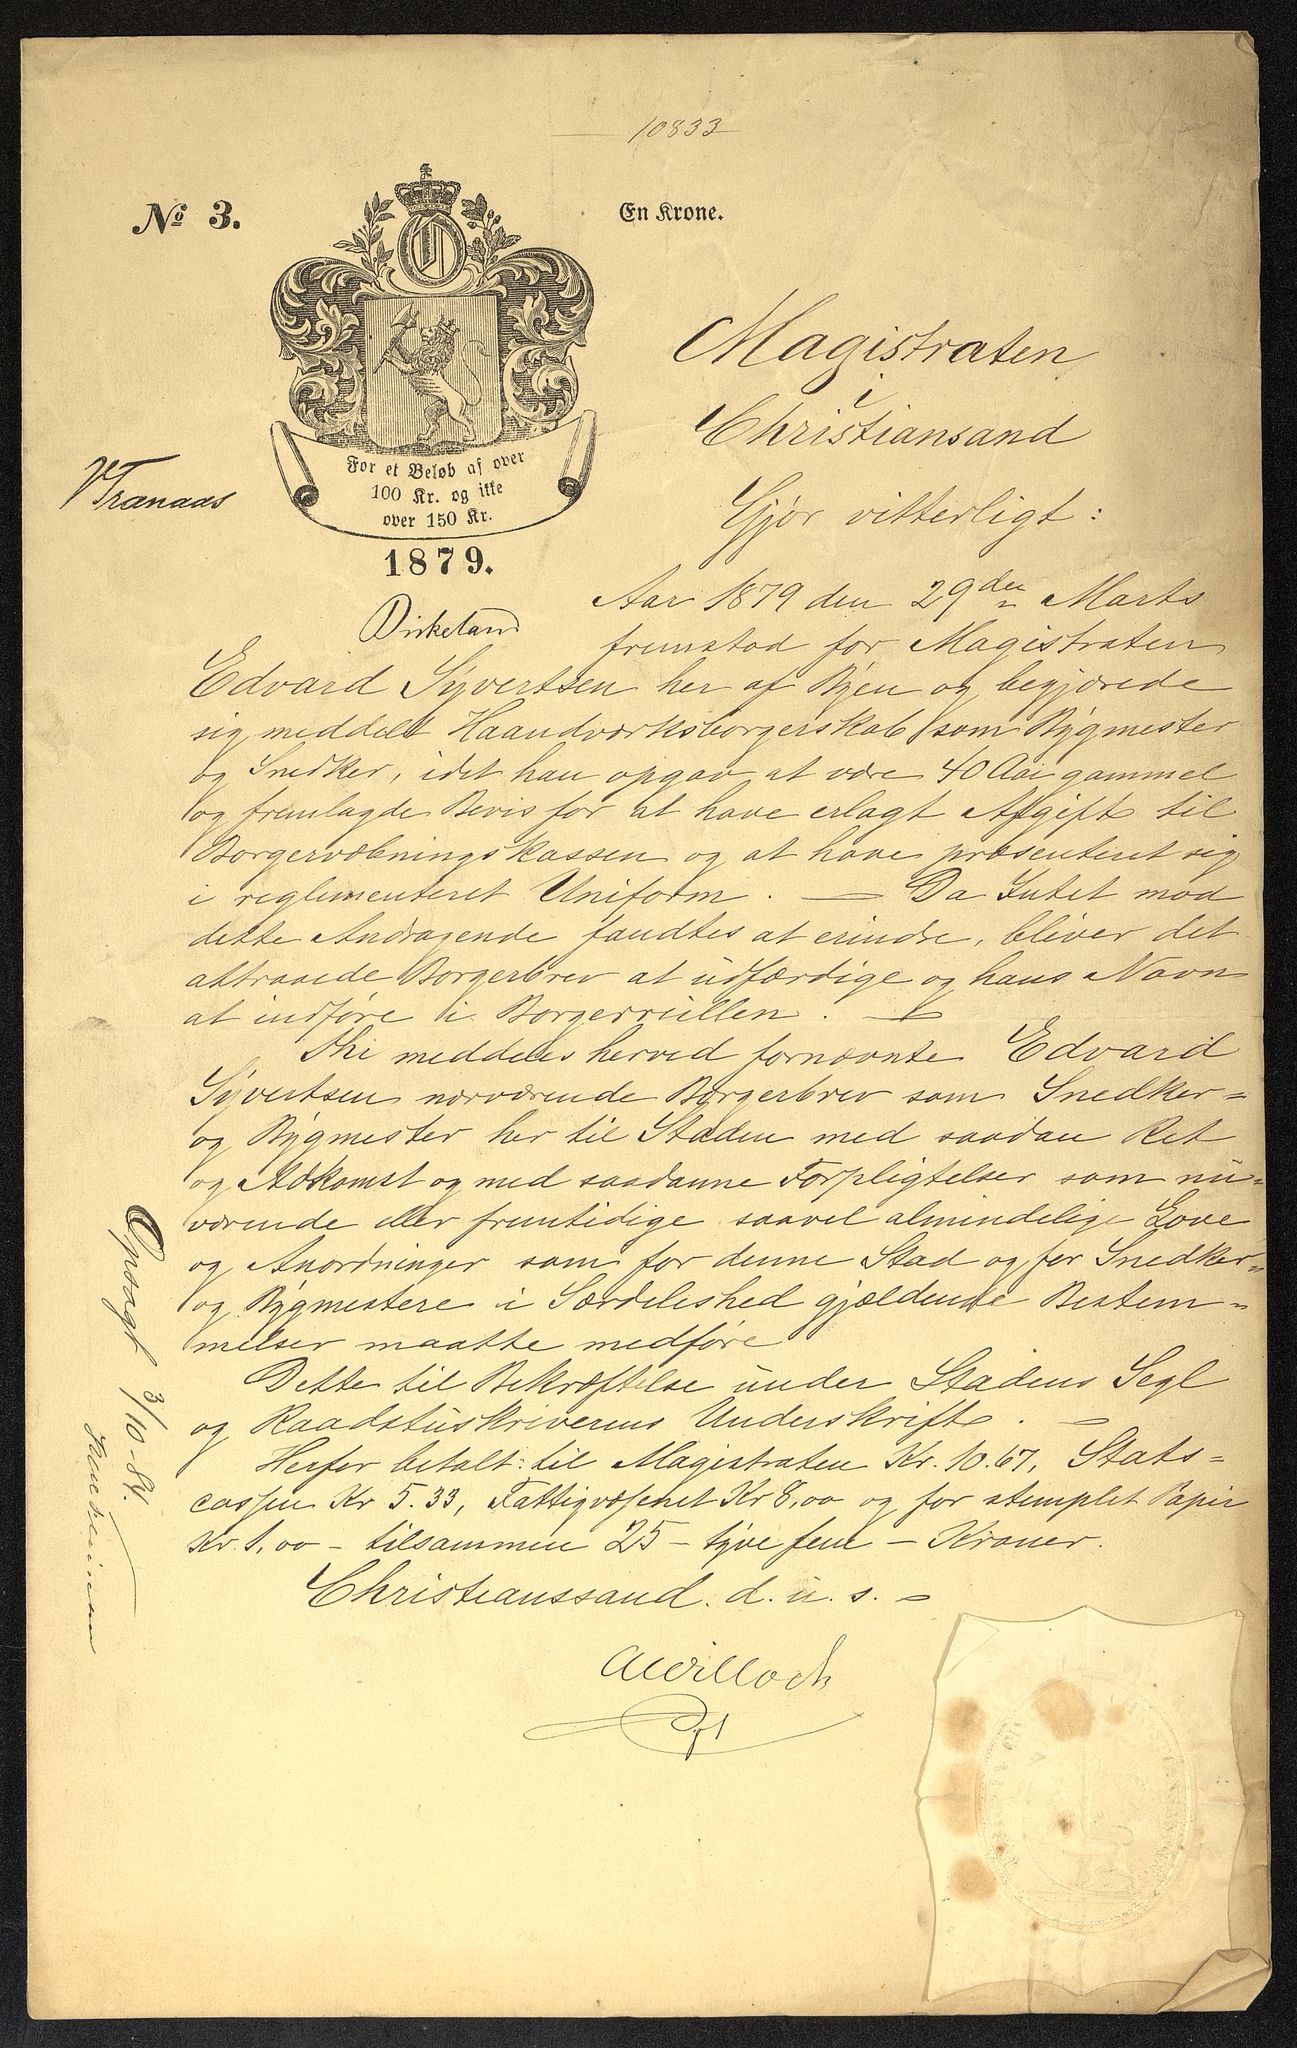 10833
No 3.
En Krone.
O
For et Beløb af over
100 Kr. og ikke
over 150 Kr.
1879.
VTranaas
Birkeland
Magistraten
i
Christiansand
Gjør vitterligt:
Aar 1879 den 29den Marts
fremstod for Magistraten
Edvard Syvertsen her af Byen og begjærede
sig meddelt Haandværksborgerskab som Bygmester
og Snedker, idet han opgav at være 40 Aar gammel
og fremlagde Bevis for at have erlagt Afgift til
Borgervæbningskassen og at have præsenteret sig
i reglementeret Uniform. — Da Intet mod
dette Andragende fandtes at erindre, bliver det
attraaede Borgerbrev at udfærdige og hans Navn
at indføre i Borgerrullen. —
Thi meddeles herved fornævnte Edvard
Syvertsen nærværende Borgerbrev som Snedker=
og Bygmester her til Staden med saadan Ret
og Adkomst og med saadanne Forpligtelser som nu=
værende eller fremtidige saavel almindelige Love
og Anordninger som for denne Stad og for Snedker=
og Bygmestere i Særdeleshed gjældende Bestem=
melser maatte medføre
Dette til Bekræftelse under Stadens Segl
og Raadstuskriverens Underskrift. —
Herfor betalt: til Magistraten Kr. 10.67, Stats=
cassen Kr 5.33, Fattigvæsenet Kr 8,00 og for stemplet Papir
Kr. 1,00 — tilsammen 25 — tyve fem — Kroner.
Christianssand. d. u. s. —
Opsagt 3/10-84.